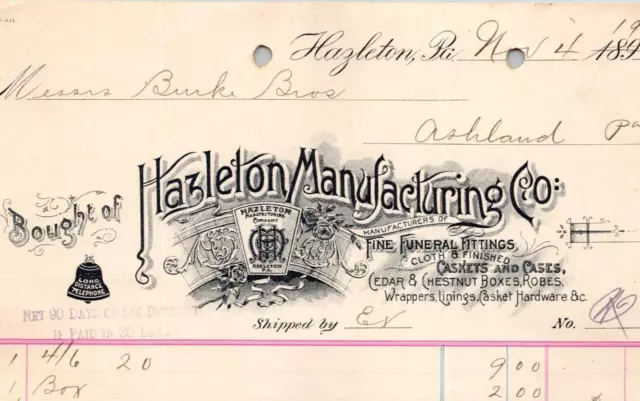 Hazleton, Pa. Nov 4 189
19
Messrs Burke Bros
Ashland Pa
Bought of
Hazleton Manufacturing Co:
HAZLETON
MANUFACTURING
COMPANY
HAZLETON
MANUFACTURERS OF
FINE FUNERAL FITTINGS,
CLOTH & FINISHED
CASKETS AND CASES,
CEDAR & CHESTNUT BOXES, ROBES,
WRAPPERS, LININGS, CASKET HARDWARE &c.
LONG
DISTANCE
TELEPHONE
NET 90 DAYS DISCOUNT
IF PAID IN 30 DAYS
Shipped by Ex No.
1 4/6 20 9 00
1 Box 2 00